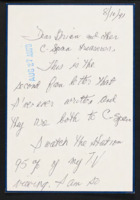 5/10/93
Dear Brian and other
C Span Producers.
This is the
second fan letter that
I've ever written and
they are both to C-Span
I watch the station
95% of my TV
viewing. I am